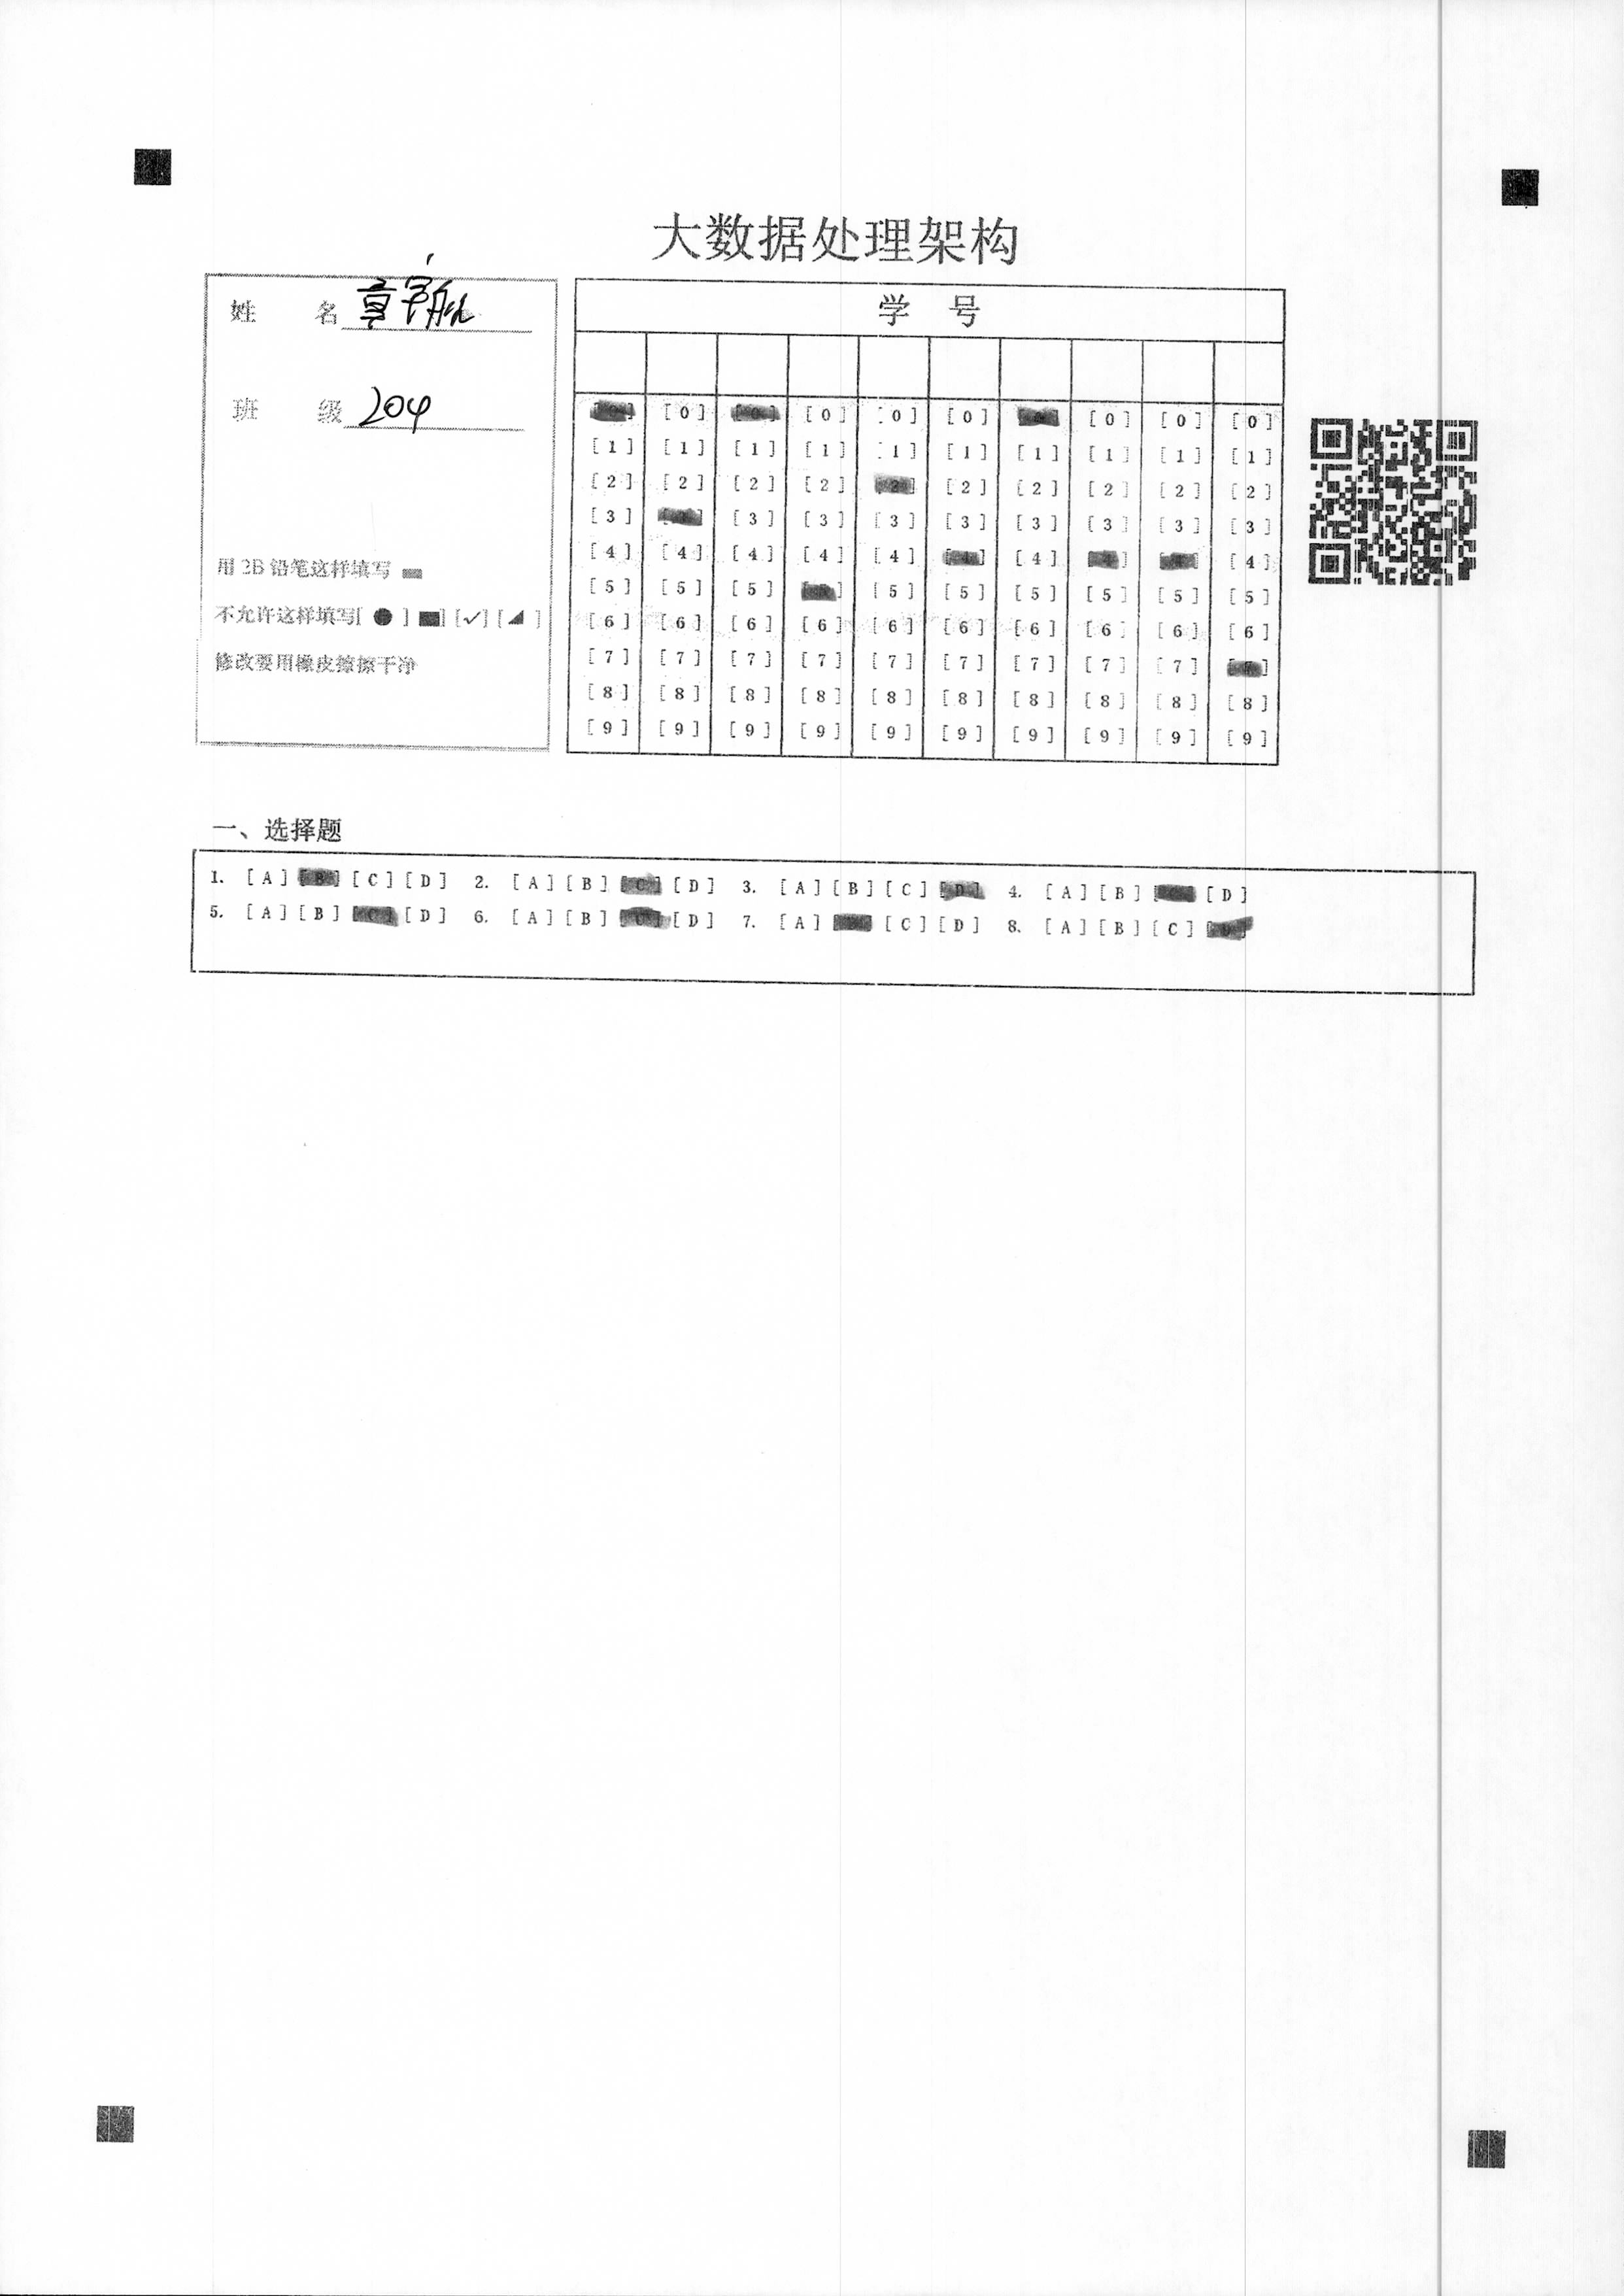 大数据处理架构
姓 名 章宇航
班 级 204
用 2B 铅笔这样填写
不允许这样填写[ ● ] [■] [✓] [◢ ]
修改要用橡皮擦擦干净
学 号
[0] [0] [0] [0] [0] [0] [0]
[1] [1] [1] [1] [1] [1] [1] [1] [1] [1]
[2] [2] [2] [2] [2] [2] [2] [2] [2] [2]
[3] [3] [3] [3] [3] [3] [3] [3] [3]
[4] [4] [4] [4] [4] [4] [4]
[5] [5] [5] [5] [5] [5] [5] [5] [5]
[6] [6] [6] [6] [6] [6] [6] [6] [6] [6]
[7] [7] [7] [7] [7] [7] [7] [7] [7]
[8] [8] [8] [8] [8] [8] [8] [8] [8] [8]
[9] [9] [9] [9] [9] [9] [9] [9] [9] [9]
一、选择题
1. [A] [B] [C] [D] 2. [A] [B] [C] [D] 3. [A] [B] [C] [D] 4. [A] [B] [D]
5. [A] [B] [C] [D] 6. [A] [B] [C] [D] 7. [A] [C] [D] 8. [A] [B] [C] [D]